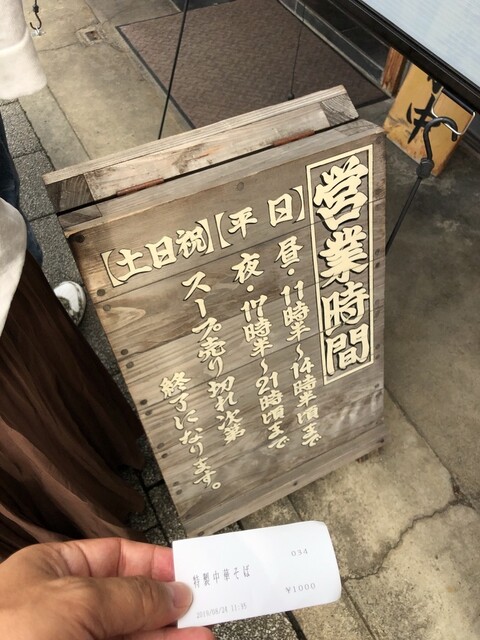 営業時間
【平日】
昼・11時半〜14時半頃まで
夜・17時半〜21時頃まで
【土日祝】
スープ売り切れ次第
終了になります。
中
034
特製中華そば
¥1000